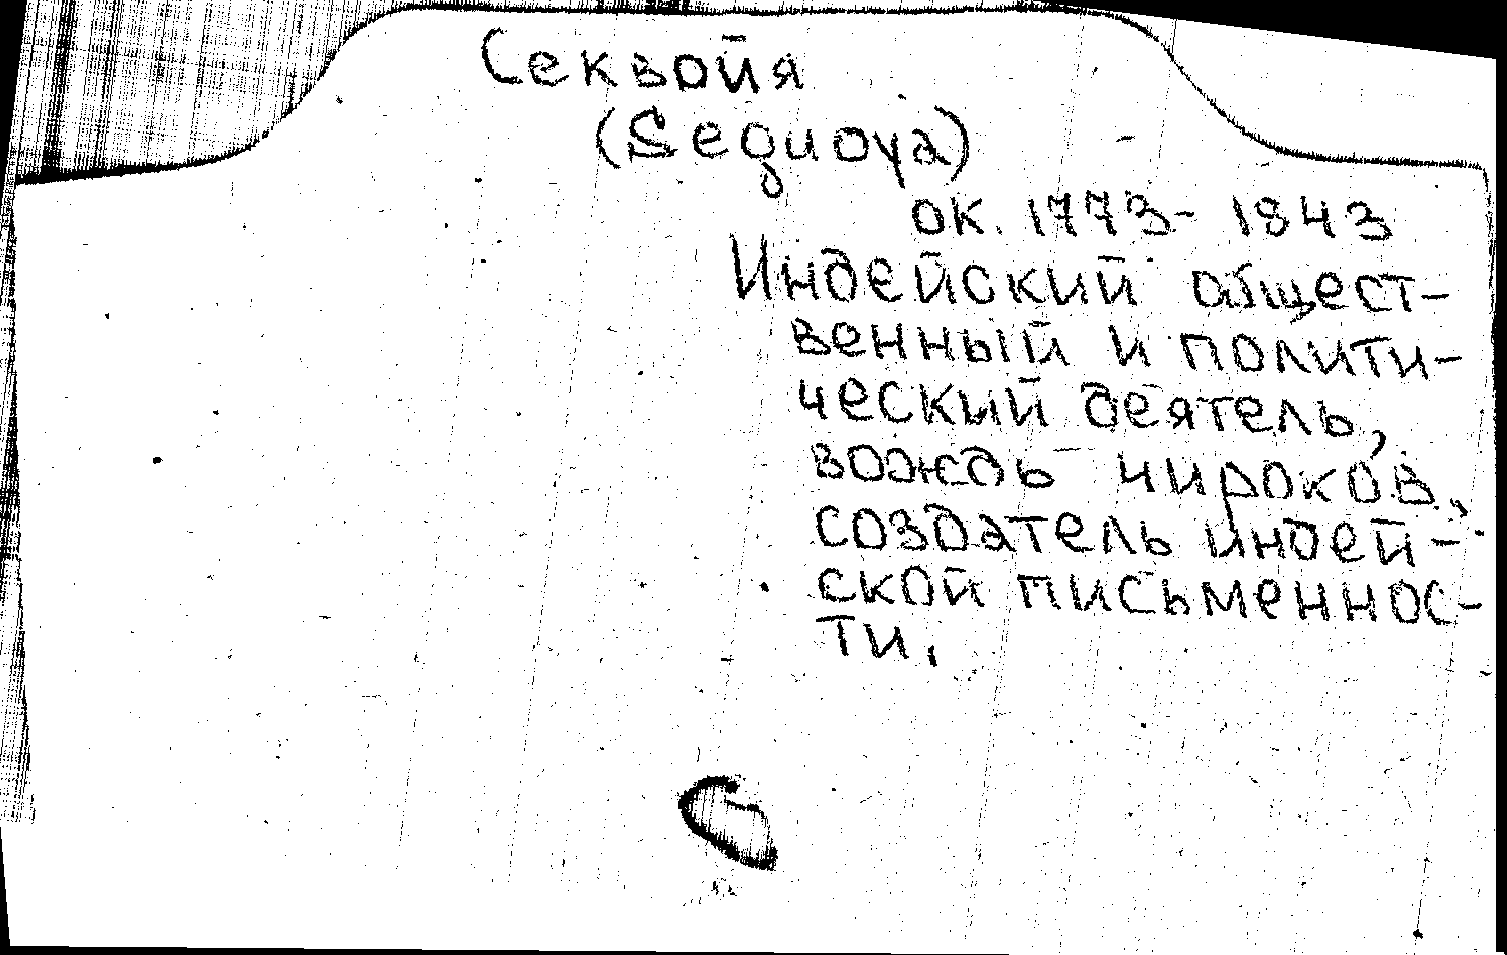 Секвойя
(Sequoya)
ок. 1773- 1843
Индейский общест-
венный и полити-
ческий деятель,
вождь чироков,
создатель индей-
ской письменнос-
ти.